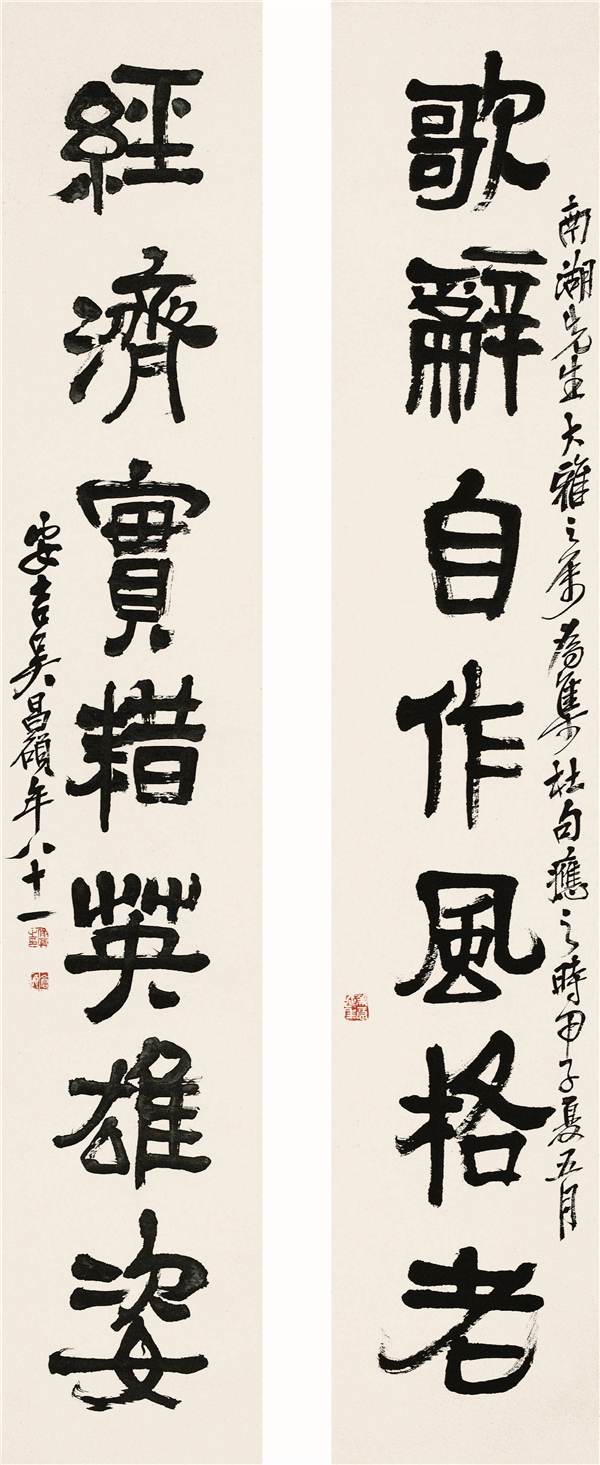 南湖先生大雅之属為集杜句應之時甲子夏五月
歌辭自作風格老
經濟實藉英雄姿
安吉吳昌碩年八十一